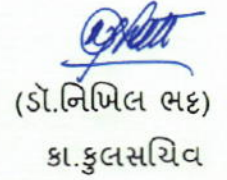 (ડૉ.નિખિલ ભટ્ટ)
કા.કુલસચિવ